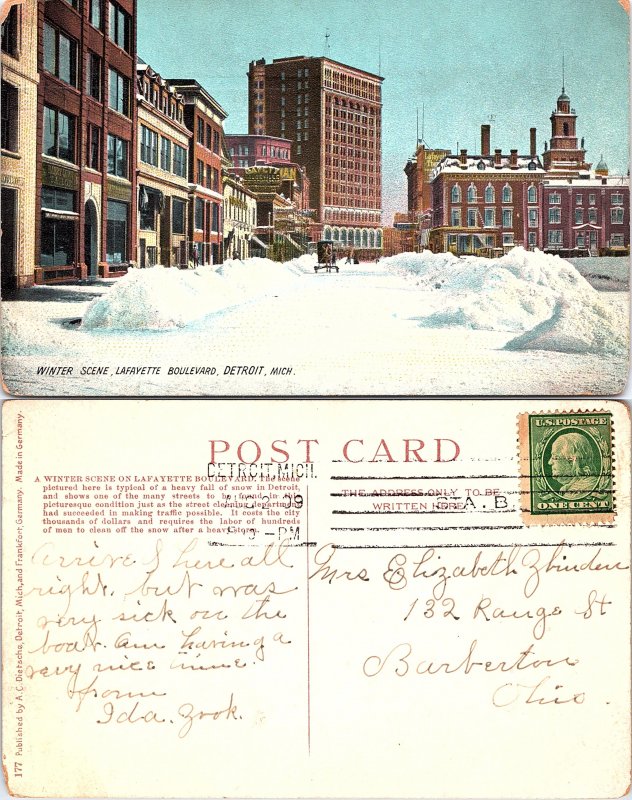 WINTER SCENE, LAFAYETTE BOULEVARD, DETROIT, MICH.
POST CARD
A WINTER SCENE ON LAFAYETTE BOULEVARD. The scene
pictured here is typical of a heavy fall of snow in Detroit,
and shows one of the many streets to be found in this
picturesque condition just as the street cleaning department
had succeeded in making traffic possible. It costs the city
thousands of dollars and requires the labor of hundreds
of men to clean off the snow after a heavy storm.
DETROIT, MICH.
PM
THE ADDRESS ONLY TO BE
WRITTEN HERE
STA. B.
U.S. POSTAGE
ONE CENT
Arrived here all
right. but was
very sick on the
boat. am having a
very nice time.
from
Ida. Zook.
Mrs Elizabeth Zbinden
132 Range St
Barberton
Ohio.
177 Published by A. C. Dietsche, Detroit, Mich. and Frankfort, Germany. Made in Germany.